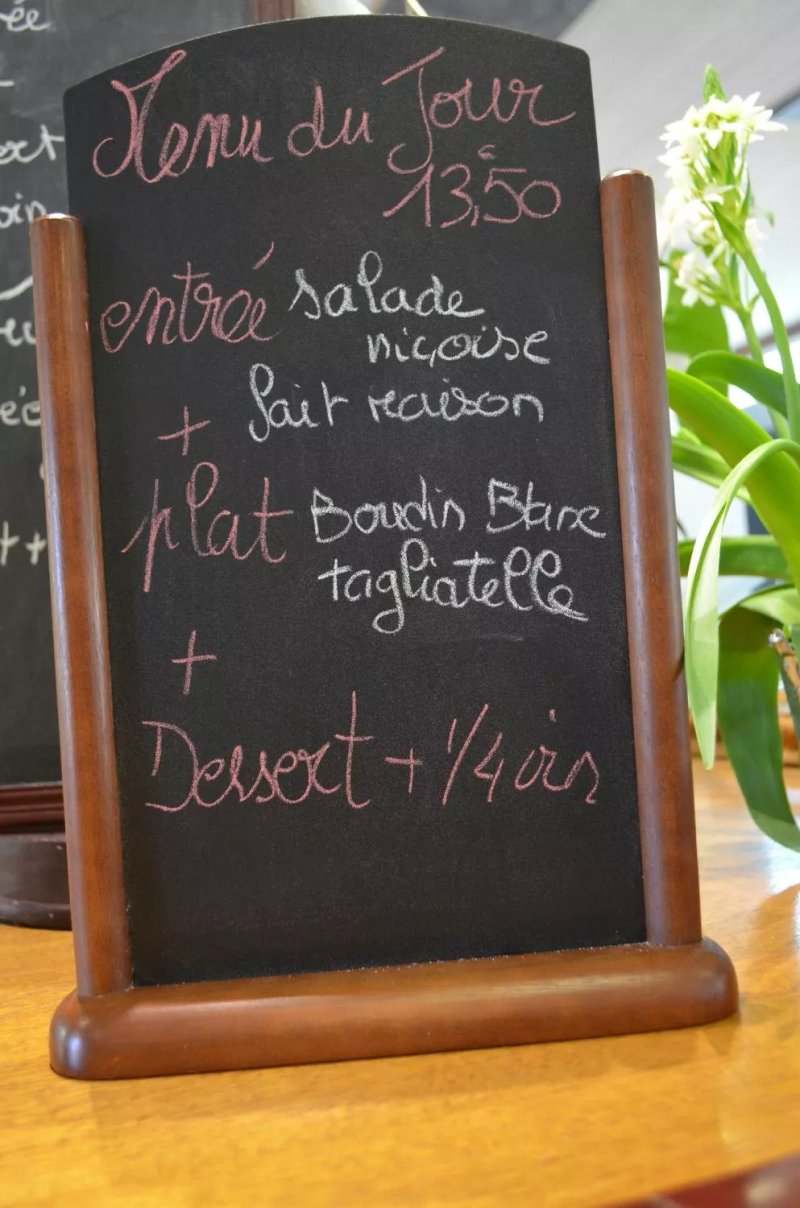 Menu du Jour
13,50
entrée salade
niçoise
fait maison
+
plat Boudin Blanc
tagliatelle
+
Dessert + 1/4 vin